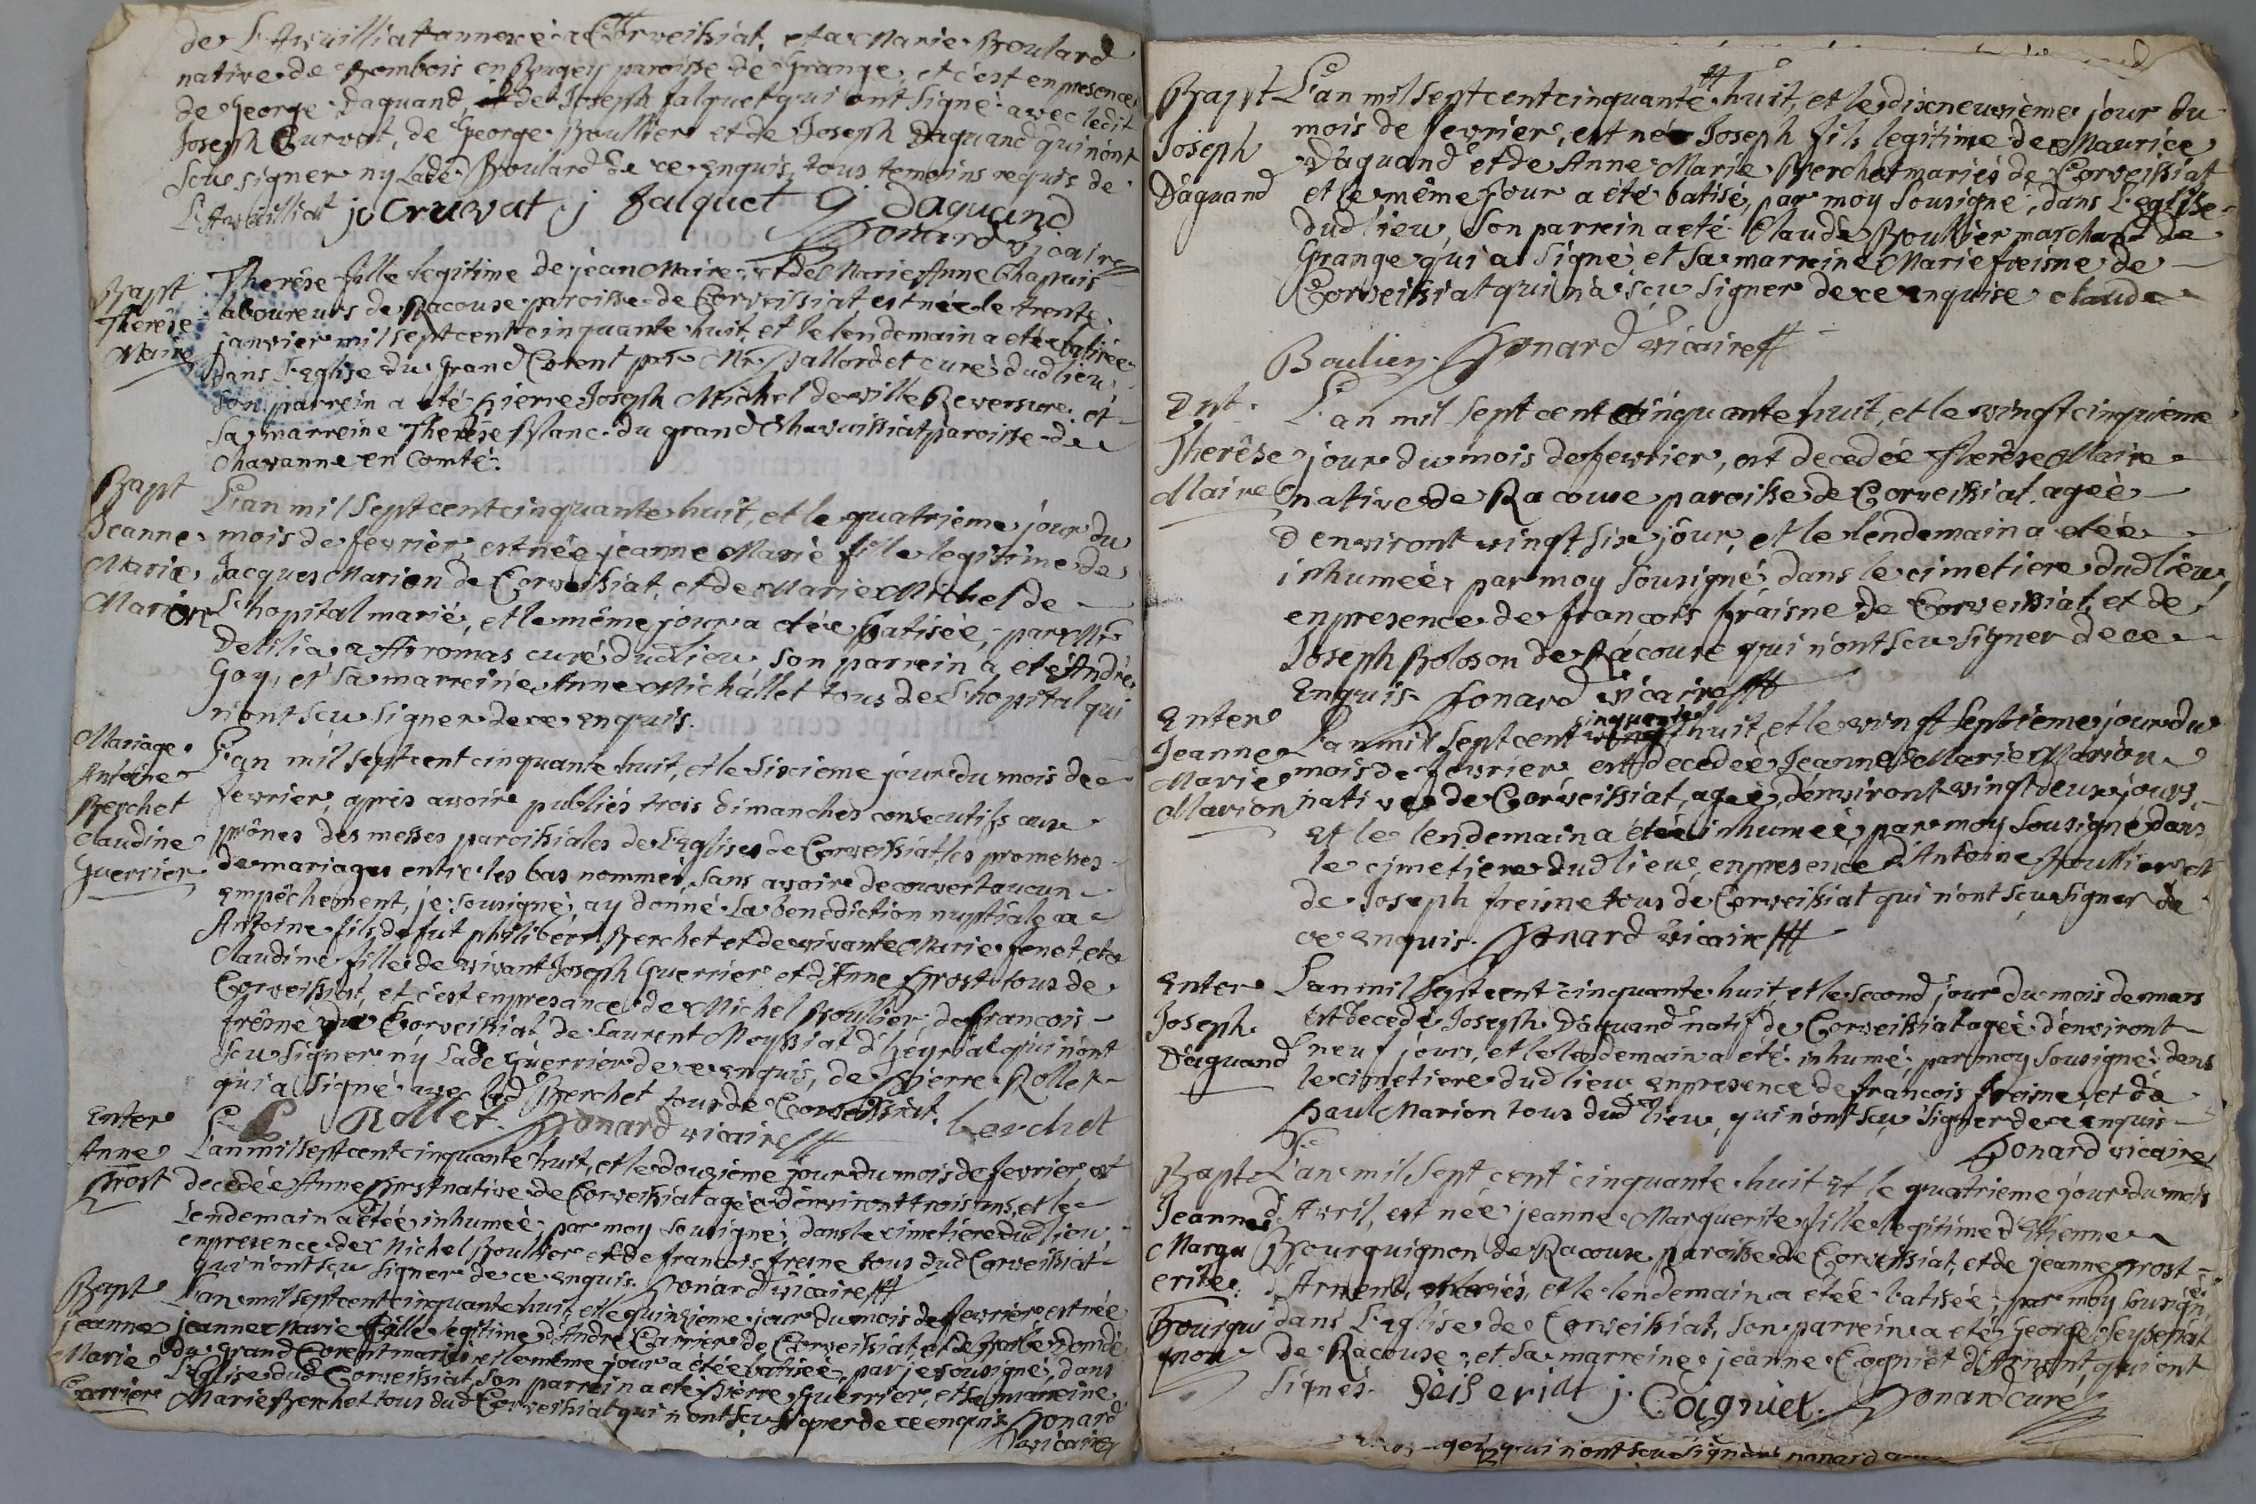 de L'Avuilliat annexe a Corveissiat, et a Marie Boulard
native de Bombois en Bugey paroisse de Grange, et c'est en presence
de George Daquand, et de Joseph falquet qui ont signé avec ledit
Joseph Curvat, de George Boullier et de Joseph Daquand qui n'ont
sçu signer ny Lade Boulard de ce enquis, tous temoins requis de
L'Avuilliat jo Cruvat j falquet G daquand
honard vicaire
Bapt
Therêse
Maire
Therêse fille legitime de jean Maire, et de Marie Anne Chapuis
laboureurs de Racouse paroisse de Corveissiat, est née le trente
janvier mil sept cent cinquante huit, et le lendemain a eté batisée
dans L'eglise du grand Corent par Mr Pallordet curé dud lieu
son parrein a eté pierre Joseph Michel de ville Reversure et
sa marreine Therêse Blanc du grand Chavuissiat paroisse de
Chavanne en Comté.
Bapt
Jeanne
Marie
Marion
L'an mil sept cent cinquante huit, et le quatrieme jour du
mois de fevrier est née jeanne Marie fille legitime de
Jacques Marion de Corveissiat, et de Marie Michel de
L'hopital marié, et le même jour a etée batisée, par Mr
Delilia a Aromas curé dud lieu, son parrein a eté André
Goy, et sa marreine Anne Michallet tous de L'hopital qui
n'ont sçu signer de ce enquis.
Mariage
Antoine
Berchet
Claudine
Guerrier
L'an mil sept cent cinquante huit, et le sixieme jour du mois de
fevrier, après avoir publiés trois dimanches consecutifs aux
prônes des messes paroissiales de L'Eglise de Corveissiat, les promesses
de mariages entre les bas nommés, sans avoir decouvert aucun
empêchement, je sousigné, ay donné la benediction nuptiale a
Antoine fils de fut philibert Berchet et de vivante Marie fenot, et a
Claudine fille de vivant Joseph Guerrier et d'Anne Prost tous de
Corveissiat, et c'est en presance de Michel Boullier, de francois
frêne de Corveissiat de Laurent Moyssiat d'heyriat qui n'ont
sçu signer ny Lade guerrier de ce enquis, de pierre Rollet
qui a signé avec led Berchet tous de Corveissiat.
Rollet. honard vicaire berchet
Enter
Anne
Prost
L'an mil sept cent cinquante huit, et le douzieme jour du mois de fevrier, est
decedée Anne Prost native de Corveissiat agée d'environt trois ans, et le
lendemain a etée inhumée, par moy sousigné, dans le cimetiére dud lieu,
en presence de Michel Boullier et de francois frene tous dud Corveissiat
qui n'ont sçu signer de ce enquis. honard vicaire
Bapt
jeanne
Marie
Carrier
L'an mil sept cent cinquante huit, et le quinzieme jour du mois de fevrier, est née
jeanne Marie fille legitime d'André Carrier de Corveissiat, et de
du grand Corent mariés et le même jour a étée batisée, par je sousigné, dans
L'Eglise dud Corveissiat, son parrein a eté pierre guerrier, et sa marreine
Marie Berchet tous dud Corveissiat qui n'ont sçu signer de ce enquis honard
vicaire
Bapt
Joseph
Daquand
L'an mil sept cent cinquante huit, et le dixneuvième jour du
mois de fevrier, est né Joseph fils legitime de Maurice
Daquand et de Anne Marie Berchet mariés de Corveissiat
et le même jour a été batisé, par moy sousigné, dans L'eglise
dud lieu, son parrein a eté Claude Boullier marchand de
Grange qui a signé et sa marreine Marie freisne de
Corveissiat qui n'a sçu signer de ce enquise claude
Boulier. honard vicaire
Dnt
Therêse
Maire
L'an mil sept cent cinquante huit, et le vingt cinquieme
jour du mois de fevrier, est decedée therêse Maire
native de Racouse paroisse de Corveissiat agée
d'environt vingt six jour, et le lendemain a etée
inhumée, par moy sousigné, dans le cimetiere dud lieu,
en presence de francois fraisne de Corveissiat, et de
Joseph Bolozon de Racouse qui n'ont sçu signer de ce
enquis. honard vicaire
Enter
Jeanne
Marie
Marion
L'an mil sept cent cinquante huit, et le vingt septieme jour du
mois de fevrier est decedée Jeanne Marie Marion
native de Corveissiat, agée d'environt vingt deux jours,
et le lendemain a étée inhumée, par moy sousigné dans
le cimetiere dud lieu, en presence d'Antoine Boullier et
de Joseph freisne tous de Corveissiat qui n'ont sçu signer de
ce enquis. honard vicaire
Enter
Joseph
Daquand
L'an mil sept cent cinquante huit, et le second jour du mois de mars
est decedé Joseph Daquand natif de Corveissiat agée d'environt
neuf jours, et le lendemain a eté inhumé, par moy sousigné, dans
le cimetiere dud lieu en presence de francois freisne, et de
paul Marion tous dud lieu, qui n'ont sçu signer de ce enquis
honard vicaire
Bapt
Jeanne
Margu
erite
Bourgui
gnon
L'an mil sept cent cinquante huit et le quatrieme jour du mois
d'Avril, est née jeanne Marguerite fille legitime d'Etienne
Bourguignon de Racouse paroisse de Corveissiat, et de jeanne Prost
d'Arnent, mariés, et le lendemain a etée batisée, par moy sousigné
dans L'eglise de Corveissiat, son parrein a eté George Seyseriat
de Racouse, et sa marreine jeanne Cogniet d'Arnent, qui ont
signés. Seiseriat j. Cogniet. honard curé
qui n'ont sçu signer honard